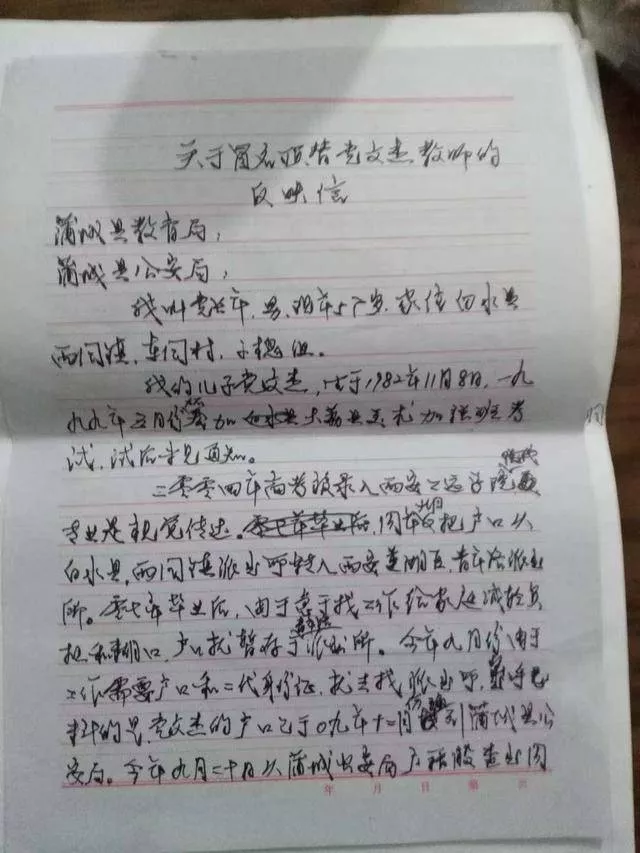 关于冒名顶替党文杰教师的
反映信
蒲城县教育局,
蒲城县公安局,
我叫党兴年,男,现年57岁,家住白水县
西固镇,东固村,子槐组。
我的儿子党文杰,生于1982年11月8日,一九
九九年五月份参加白水县大荔县美术加强班考
试,试后未见通知。
二零零四年高考被录入西安工运学院
专业是视觉传达。零七年毕业后,同年九月把户口从
白水县,西固镇派出所转入西安莲湖区,青年路派出
所。零七年毕业后,由于急于找工作给家庭减轻负
担和糊口,户口就暂存于派出所。今年九月份由于
工作需要户口和二代身份证,就去找派出所,
料的是党文杰的户口已于09年十二月份到蒲城县公
安局。今年九月二十日从蒲城公安局户籍股查出同
年 月 日 第 页